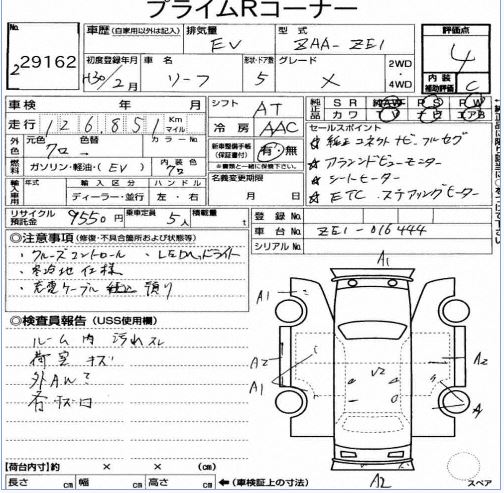 プライムRコーナー
No. 229162
車歴 (自家用以外は記入)
排気量 EV
型式 ZAA-ZE1
評価点 4
内装補助評価 C
初度登録年月 H30/2月
車名 リーフ
形状・ドア数 5
グレード X
2WD・4WD
車検 年 月
シフト AT
純正品 SR 純AW PS PW
カワ TV ナビ エアB
走行 126,851 Km マイル
冷房 AAC
外色 元色 クロ → 色替
カラーNo
新車整備手帳(保証書付) 有・無
※書類と一緒に保管下さい。
燃料 ガソリン・軽油・(EV)
内装色 クロ
名義変更期限 月 日
輸入車用 年式 輸入区分 ハンドル
ディーラー・並行 左・右
リサイクル預託金 9550円
乗車定員 5人
積載量 t
セールスポイント
☆ 純正コネクトナビ フルセグ
☆ アラウンドビューモニター
☆ シートヒーター
☆ ETC ステアリングヒーター
登録No.
車台No. ZE1-016444
シリアルNo.
◎注意事項 (修復・不具合箇所および状態等)
・クルーズコントロール ・LEDヘッドライト
・寒冷地仕様
・充電ケーブル 預り
◎検査員報告 (USS使用欄)
ルーム内 汚れスレ
荷室 キズ
外AWキズ
A1
A1
A2
A1
V2
A2
A
A2
スペア
【荷台内寸】約 × × (cm)
長さ cm 幅 cm 高さ cm ←(車検証上の寸法)